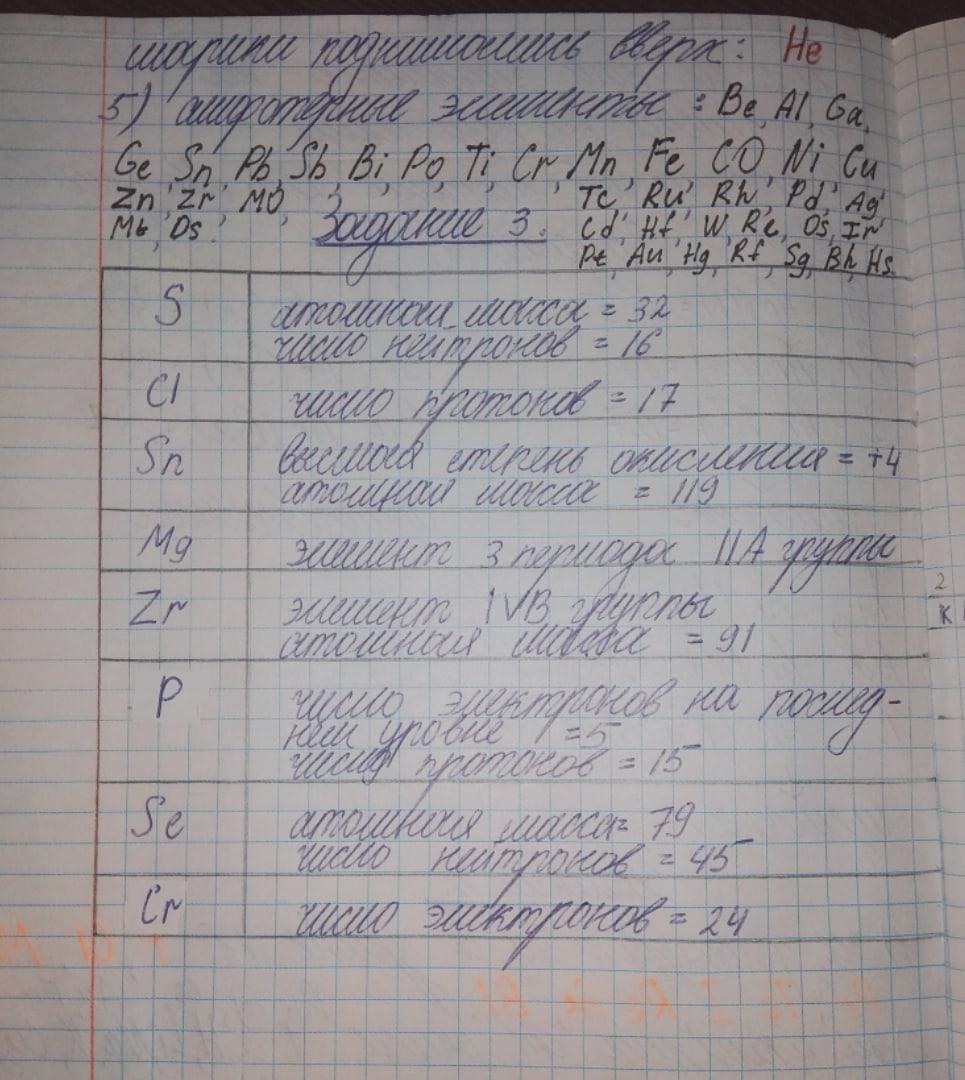 шарики поднимались вверх: He
5) амфотерные элементы: Be, Al, Ga,
Ge, Sn, Pb, Sb, Bi, Po, Ti, Cr, Mn, Fe, CO, Ni, Cu
Zn, Zr, MO, Tc, Ru, Rh, Pd, Ag,
Mt, Ds. Cd, Hf, W, Re, Os, Ir
Задание 3. Pt, Au, Hg, Rf, Sg, Bh, Hs
S атомная масса = 32
число нейтронов = 16
Cl число протонов = 17
Sn высшая степень окисления = +4
атомная масса = 119
Mg элемент 3 периода IIA группы
Zr элемент IVB группы
атомная масса = 91
P число электронов на послед-
нем уровне = 5
число протонов = 15
Se атомная масса = 79
число нейтронов = 45
Cr число электронов = 24
2
K